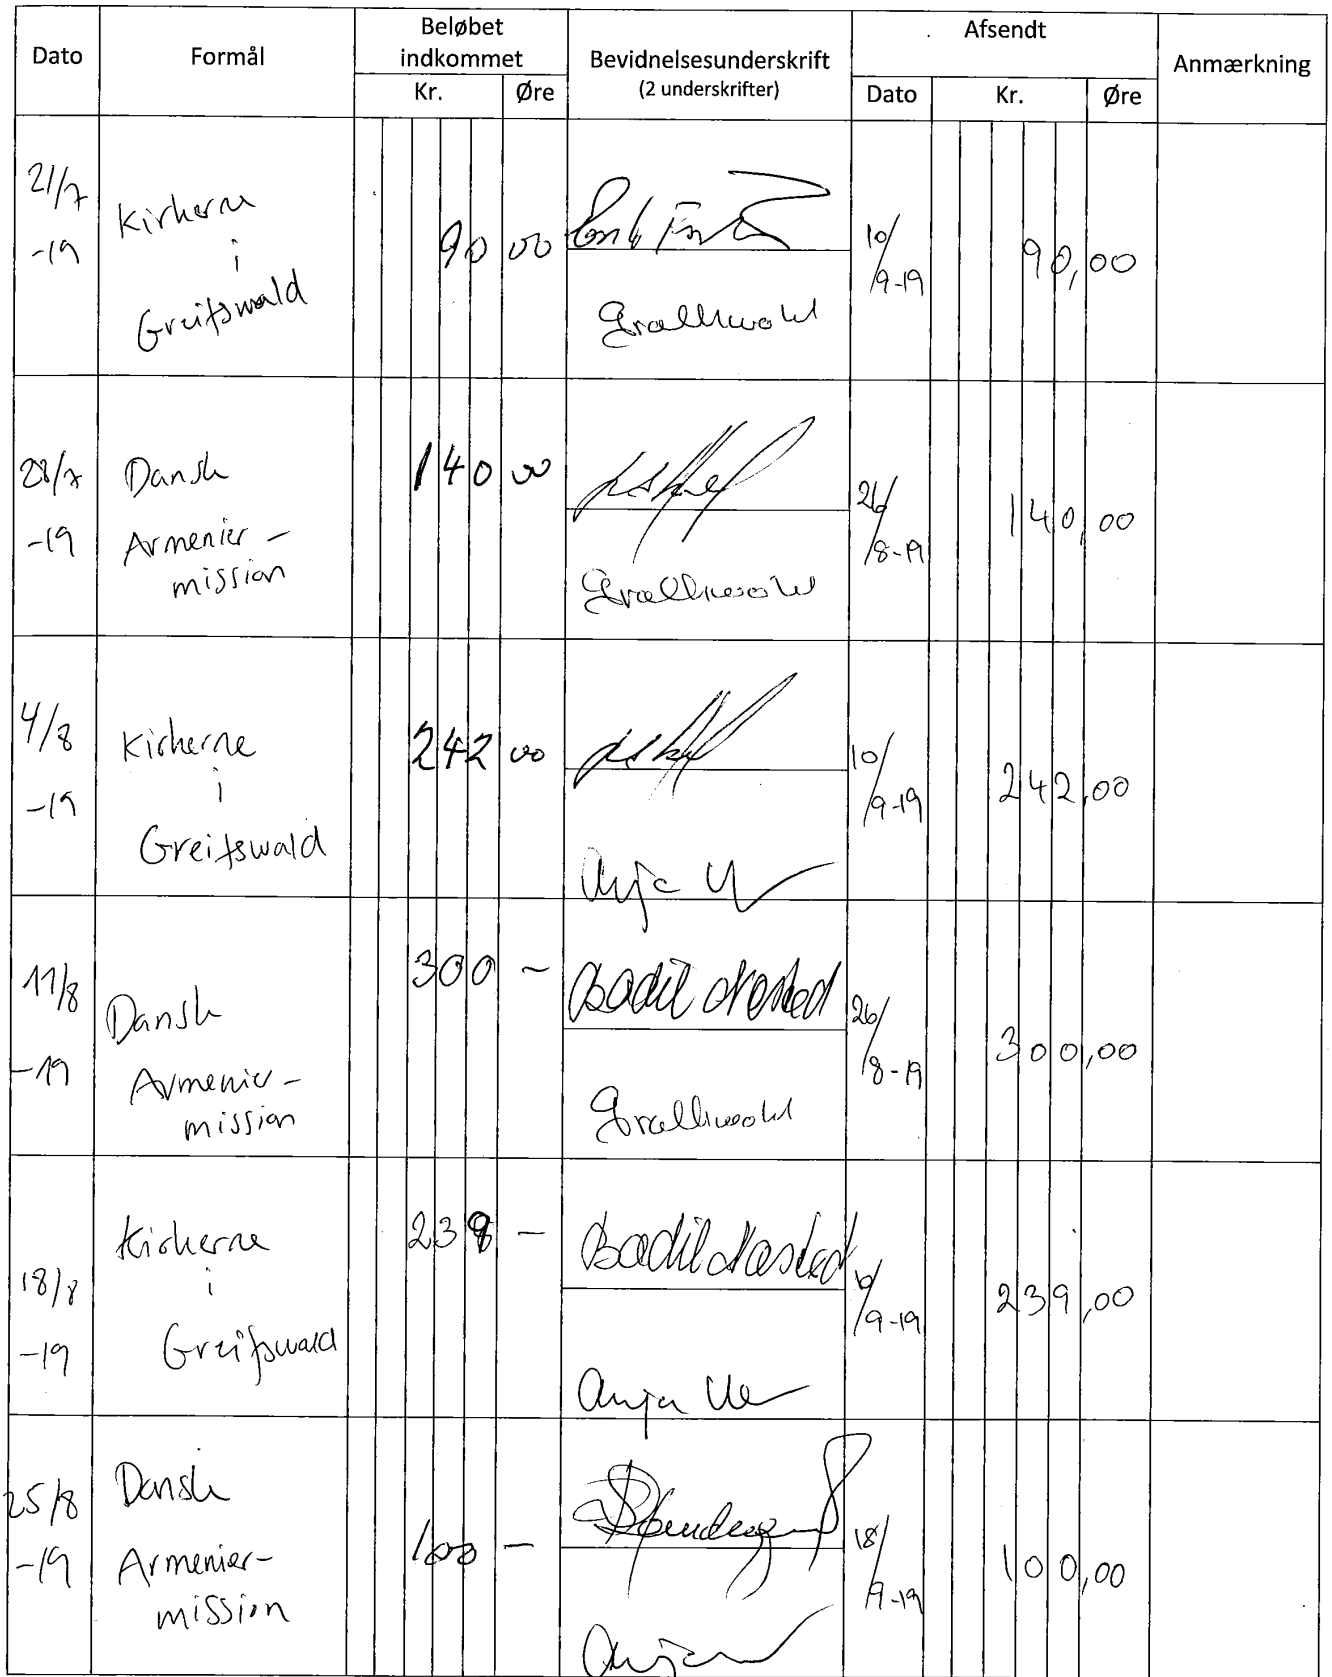 Dato Formål Beløbet indkommet Bevidnelsesunderskrift (2 underskrifter) Afsendt Anmærkning
Kr. Øre Dato Kr. Øre
21/7 -19 Kirkerne i Greifswald 90 00 10/9-19 90,00
28/7 -19 Dansk Armenier-mission 140 00 26/8-19 140,00
4/8 -19 Kirkerne i Greifswald 242 00 Anja 10/9-19 242,00
11/8 -19 Dansk Armenier-mission 300 - Bodil 26/8-19 300,00
18/8 -19 Kirkerne i Greifswald 239 - Bodil Anja 10/9-19 239,00
25/8 -19 Dansk Armenier-mission 100 - Anja 18/9-19 100,00